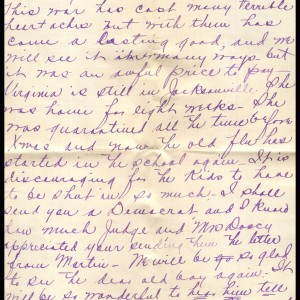 This war has cost many terrible
heartaches but with them has
come a lasting good, and we
will see it in many ways but
it was an awful price to pay
Virginia is still in Jacksonville. She
was home for eight weeks - She
was quarantined all the time before
Xmas and now the old flu has
started in the school again - It is
discouraging for the kids to have
to be shut in so much - I shall
send you a Democrat and I know
how much Judge and Mrs
appreciated your sending them the letter
from Martin - We will be so glad
to see the dear old boy again. It
will be so wonderful to hear him tell